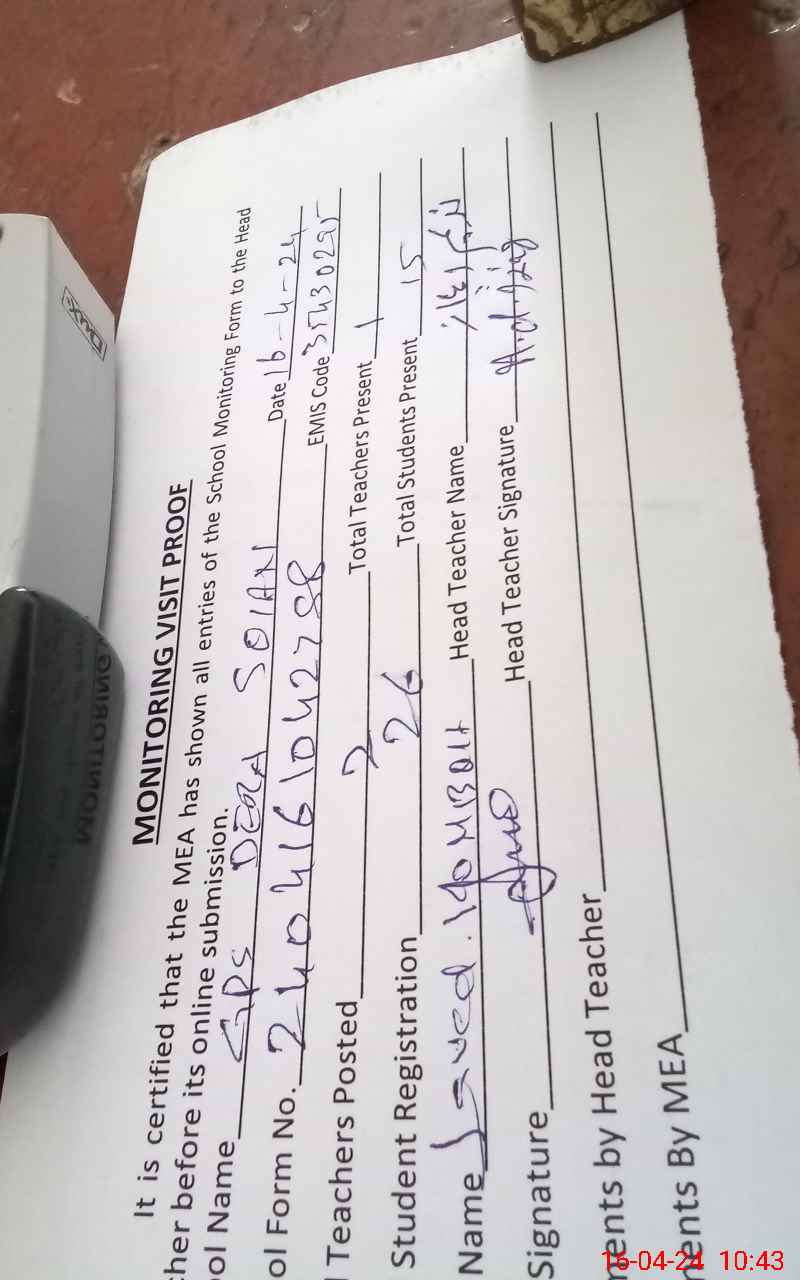 MONITORING VISIT PROOF
It is certified that the MEA has shown all entries of the School Monitoring Form to the Head
cher before its online submission.
ool Name GPS DERA SOIAN Date 16-4-24
ol Form No. 2404161042788 EMIS Code 35430295
l Teachers Posted 2 Total Teachers Present 1
Student Registration 26 Total Students Present 15
Name Javed Head Teacher Name
Signature Head Teacher Signature
ments by Head Teacher
ments By MEA
16-04-24 10:43